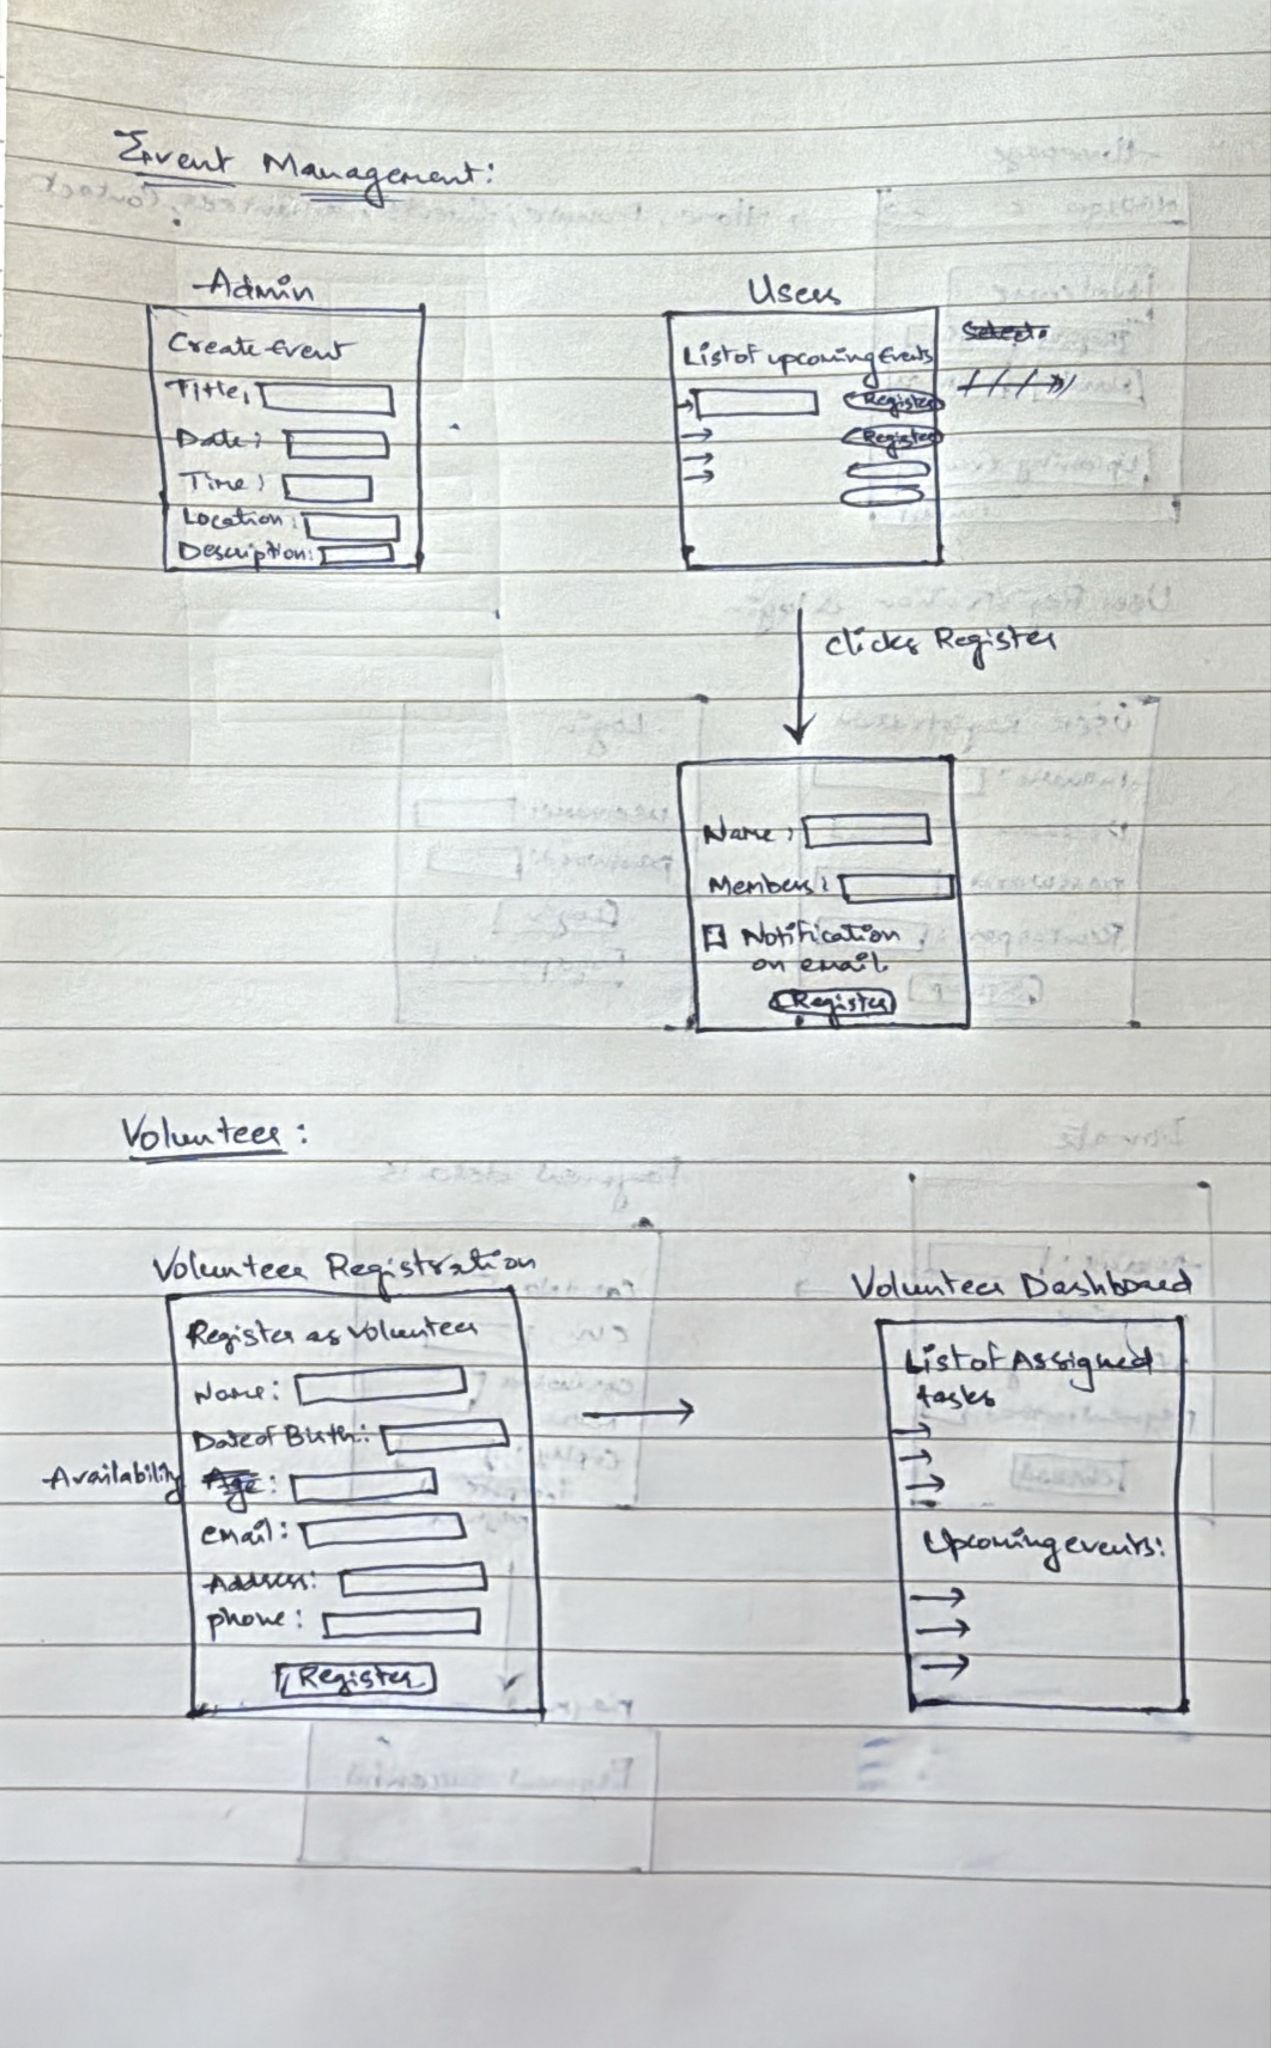 Event Management:
Admin
Create Event
Title:
Date:
Time:
Location:
Description:
Users
List of upcoming Events
Register
Register
clicks Register
Name:
Members:
Notification
on email
Register
Volunteer:
Volunteer Registration
Register as Volunteer
Name:
Date of Birth:
Availability Age:
email:
Address:
phone:
Register
Volunteer Dashboard
List of Assigned
tasks
Upcoming events: